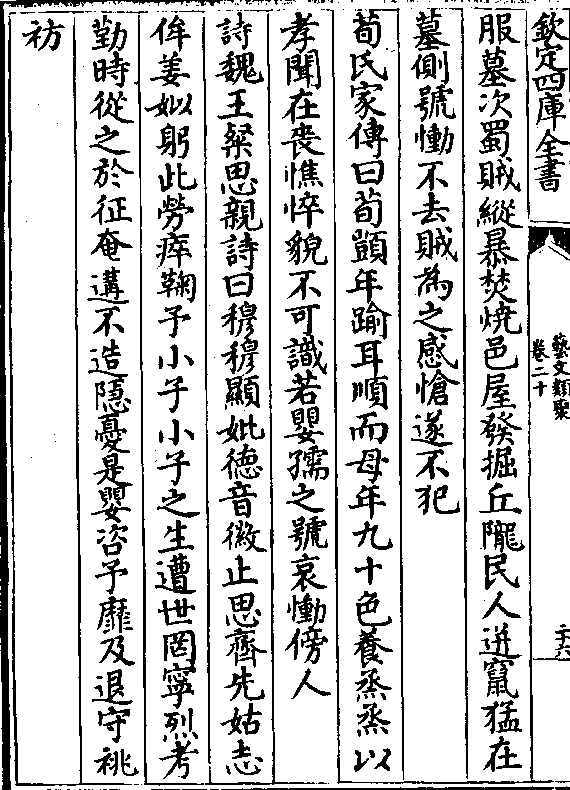 欽定四庫全書
藝文類聚
卷二十
二十六
服墓次蜀賊縱暴焚燒邑屋發掘丘隴民人迸竄猛在
墓側號慟不去賊為之感愴遂不犯
荀氏家傳曰荀顗年踰耳順而母年九十色養烝烝以
孝聞在喪憔悴貌不可識若嬰孺之號哀慟傍人
詩魏王粲思親詩曰穆穆顯妣德音徽止思齊先姑志
侔姜姒躬此勞瘁鞠予小子小子之生遭世罔寧烈考
勤時從之於征奄遘不造隱憂是嬰咨予靡及退守祧
祊